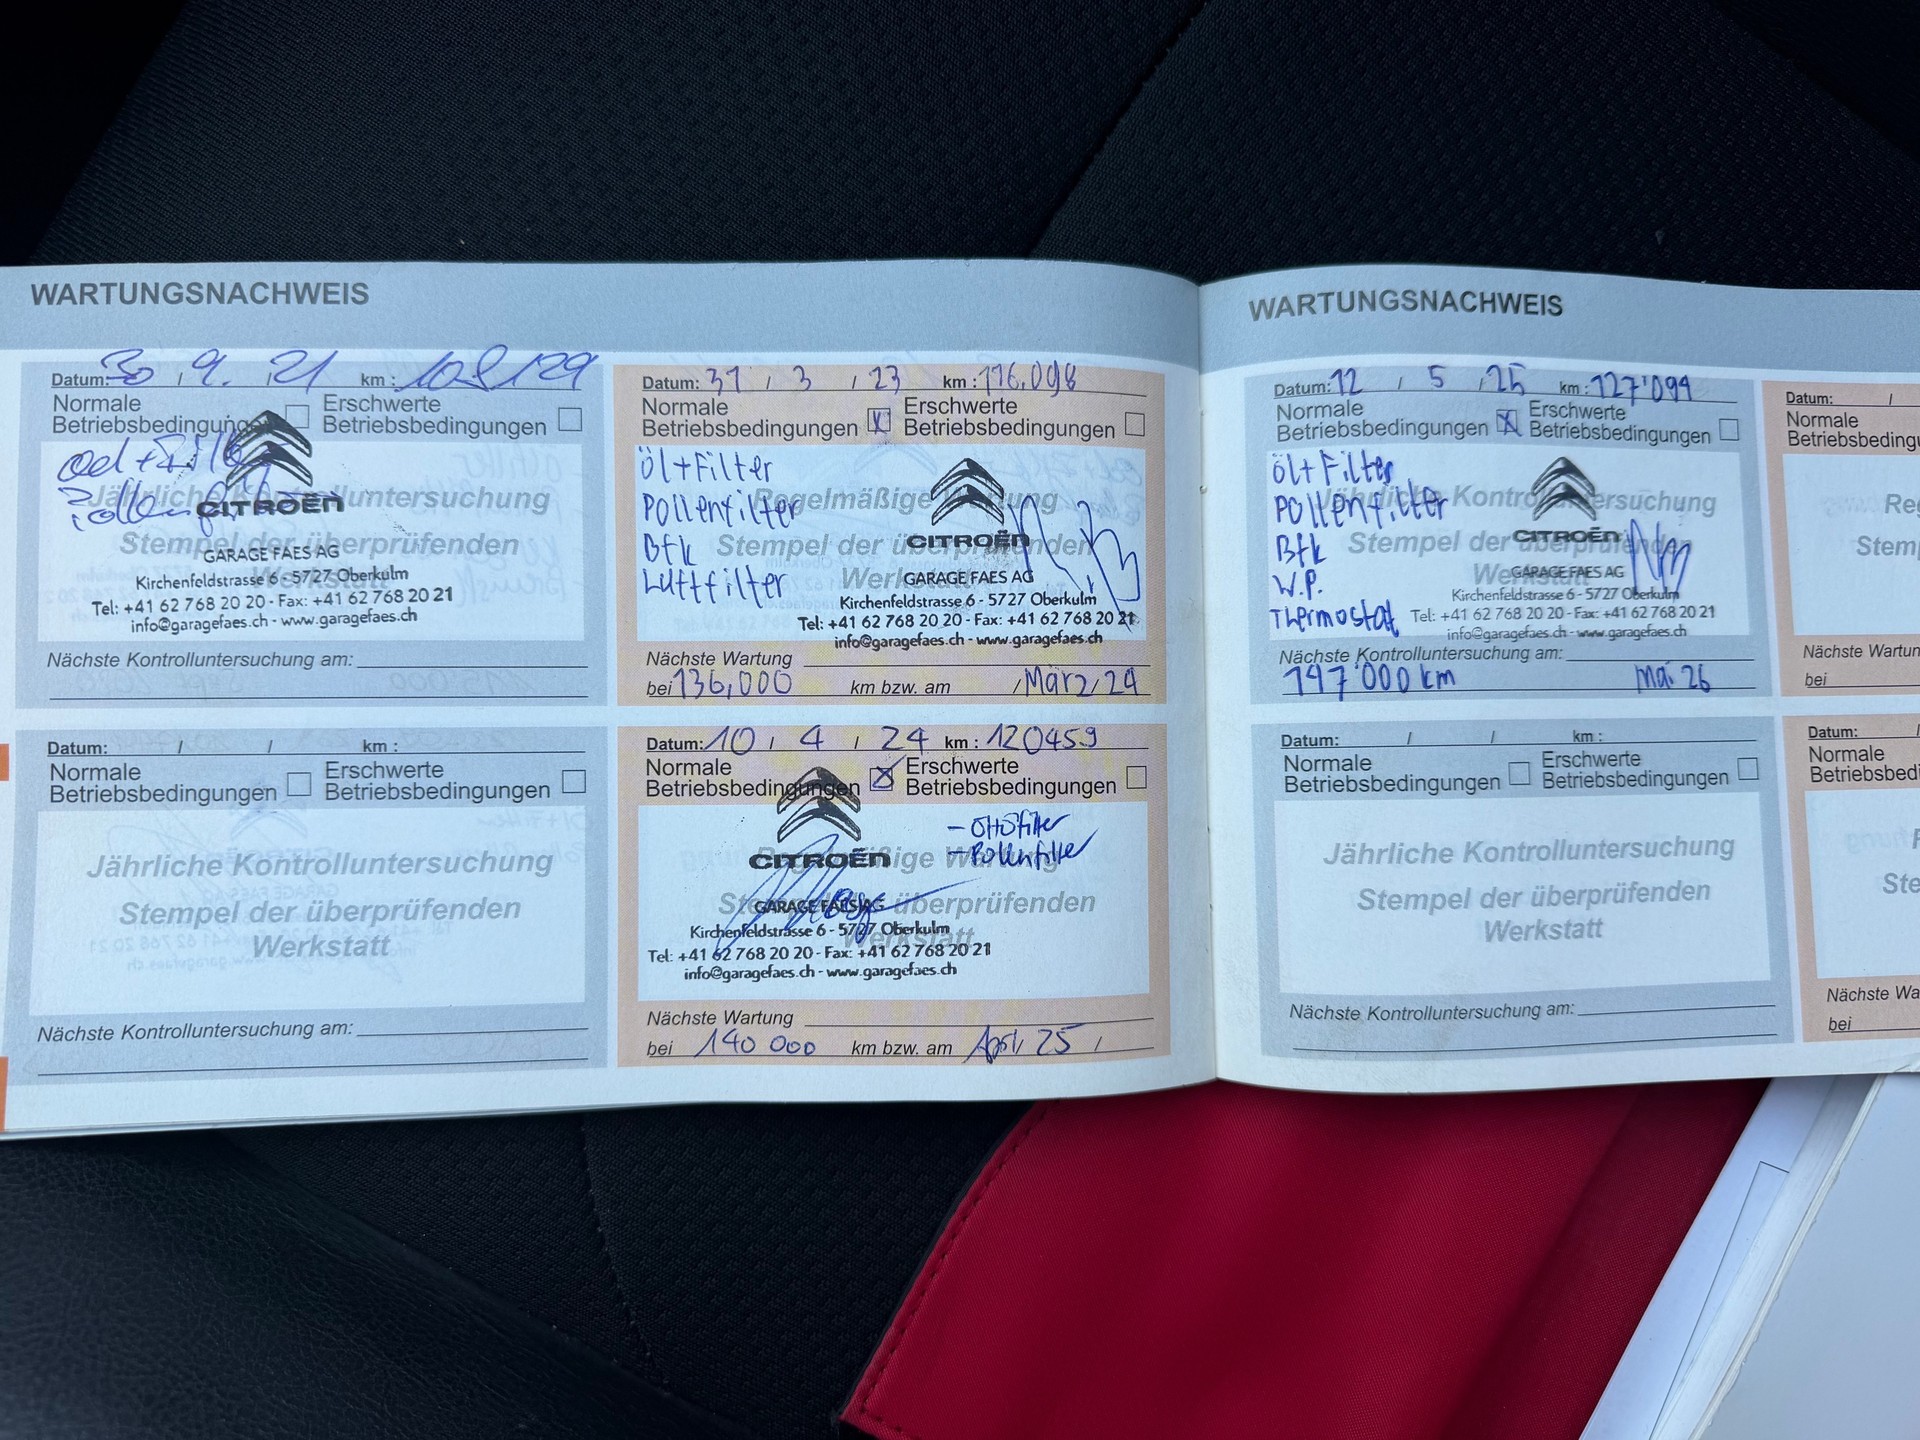 WARTUNGSNACHWEIS
Datum: 30 / 9. / 21 km : 108129
Normale Betriebsbedingungen
Erschwerte Betriebsbedingungen
Oel + Filter
Pollenfilter
Jährliche Kontrolluntersuchung
Stempel der überprüfenden
Werkstatt
CITROËN
GARAGE FAES AG
Kirchenfeldstrasse 6 - 5727 Oberkulm
Tel: +41 62 768 20 20 - Fax: +41 62 768 20 21
info@garagefaes.ch - www.garagefaes.ch
Nächste Kontrolluntersuchung am:
Datum: 31 / 3 / 23 km : 116.098
Normale Betriebsbedingungen X
Erschwerte Betriebsbedingungen
Öl+Filter
Pollenfilter
Bfk
Luftfilter
Regelmäßige Wartung
Stempel der überprüfenden
Werkstatt
CITROËN
GARAGE FAES AG
Kirchenfeldstrasse 6 - 5727 Oberkulm
Tel: +41 62 768 20 20 - Fax: +41 62 768 20 21
info@garagefaes.ch - www.garagefaes.ch
Nächste Wartung
bei 136,000 km bzw. am / März / 24
Datum: / / km :
Normale Betriebsbedingungen
Erschwerte Betriebsbedingungen
Jährliche Kontrolluntersuchung
Stempel der überprüfenden
Werkstatt
Nächste Kontrolluntersuchung am:
Datum: 10 / 4 / 24 km : 120459
Normale Betriebsbedingungen X
Erschwerte Betriebsbedingungen
- Pollenfilter
CITROËN
Regelmäßige Wartung
Stempel der überprüfenden
Werkstatt
GARAGE FAES AG
Kirchenfeldstrasse 6 - 5727 Oberkulm
Tel: +41 62 768 20 20 - Fax: +41 62 768 20 21
info@garagefaes.ch - www.garagefaes.ch
Nächste Wartung
bei 140 000 km bzw. am April 25 /
WARTUNGSNACHWEIS
Datum: 12 / 5 / 25 km : 127'094
Normale Betriebsbedingungen X
Erschwerte Betriebsbedingungen
Öl+Filter
Pollenfilter
Bfk
W.P.
Thermostat
Jährliche Kontrolluntersuchung
Stempel der überprüfenden
Werkstatt
CITROËN
GARAGE FAES AG
Kirchenfeldstrasse 6 - 5727 Oberkulm
Tel: +41 62 768 20 20 - Fax: +41 62 768 20 21
info@garagefaes.ch - www.garagefaes.ch
Nächste Kontrolluntersuchung am:
147'000 km Mai 26
Datum: /
Normale
Betriebsbedingu
Re
Stemp
Nächste Wartun
bei
Datum: / / km :
Normale Betriebsbedingungen
Erschwerte Betriebsbedingungen
Jährliche Kontrolluntersuchung
Stempel der überprüfenden
Werkstatt
Nächste Kontrolluntersuchung am:
Datum: /
Normale
Betriebsbedi
Ste
Nächste Wa
bei